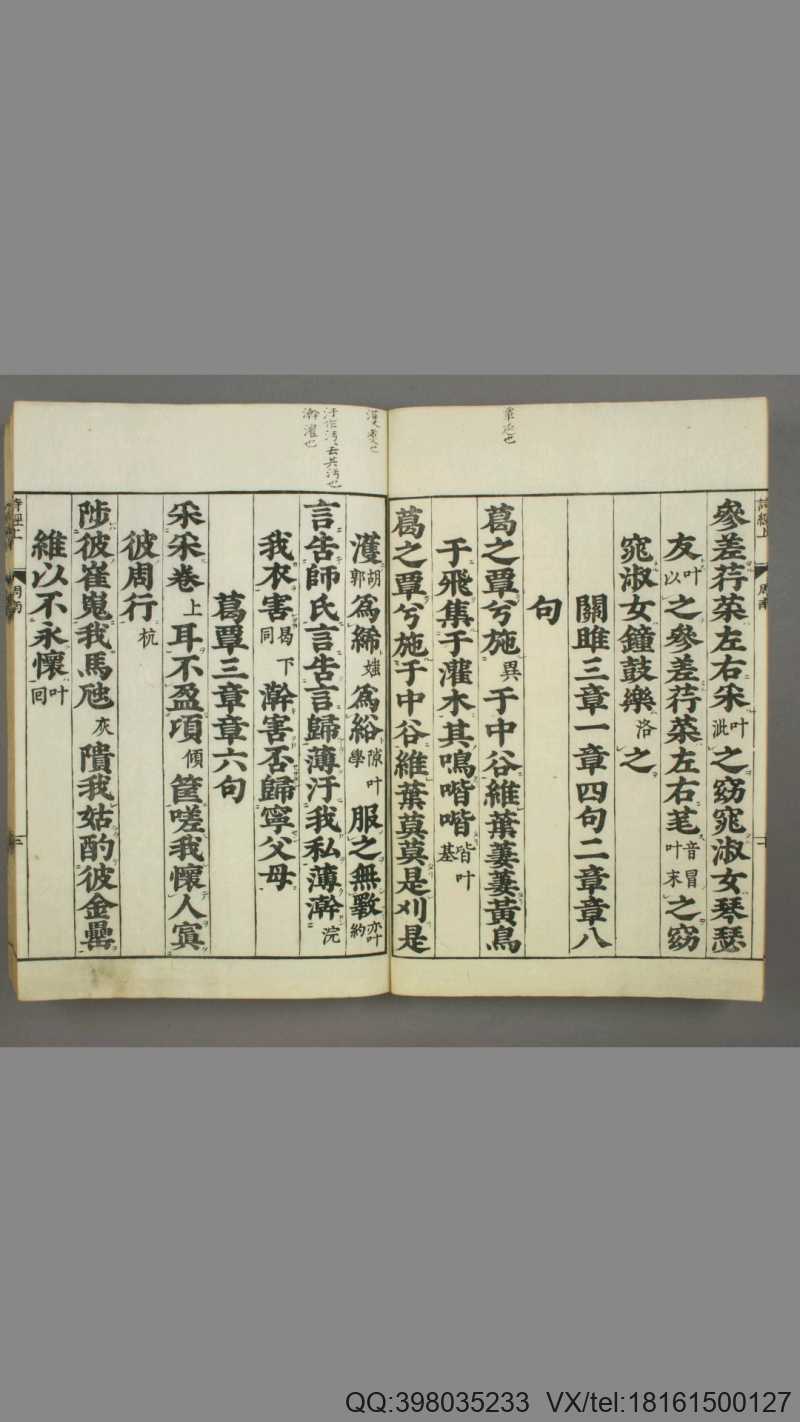 詩經上 周南
章近也
參差荇菜左右采叶泚之窈窕淑女琴瑟
友叶以之參差荇菜左右芼音冒叶末之窈
窕淑女鐘鼓樂洛之
關雎三章一章四句二章章八
句
葛之覃兮施異于中谷維葉萋萋黃鳥
于飛集于灌木其鳴喈喈皆叶基
葛之覃兮施于中谷維葉莫莫是刈是
汙作污去其污也
澣濯也
濩胡郭為絺蚩為綌隙叶學服之無斁亦叶約
言告師氏言告言歸薄汙我私薄澣浣
我衣害曷下同澣害否歸寧父母
葛覃三章章六句
采采卷上耳不盈項傾筐嗟我懷人寘
彼周行杭
陟彼崔嵬我馬虺灰隤我姑酌彼金罍
維以不永懷叶回
詩經上 周南
QQ:398035233 VX/tel:18161500127